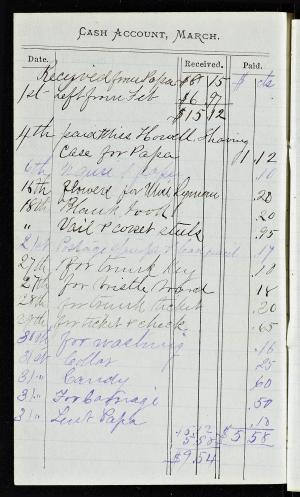 CASH ACCOUNT, MARCH.
Date. Received. Paid.
Received from Papa $8 15 $ cts
1st Left from Feb $6 97
$15 12
4th paid Miss Howell Shaving
Case for Papa 1 12
6th paper 10
16th flowers for Miss Lyman .20
18th Blank book .20
" Vail & corset steels .95
21st Postage stamps & .17
27th For trunk key 10
27th for 18
28th for trunk ticket .20
29th for ticket & check .65
30th for washing .16
31st Collar 25
31" Candy 60
31" For Carriage .50
31" Lent Papa .10
15.12 $5 58
5.58
$9.54